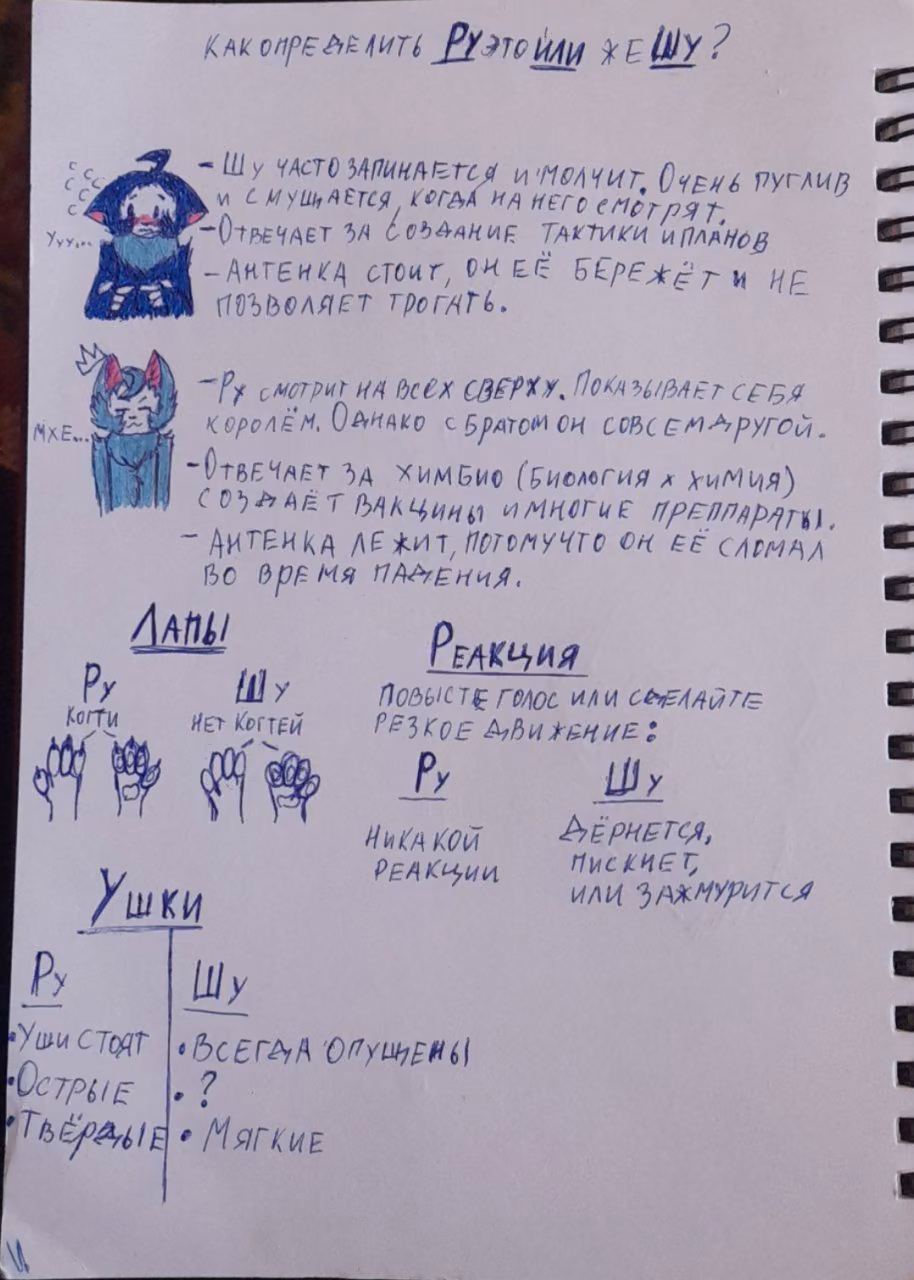 Как определить Ру это или же Шу?
- Шу часто запинается и молчит. Очень пуглив
и смущается, когда на него смотрят.
- Отвечает за создание тактики и планов
- Антенка стоит, он её бережёт и не
позволяет трогать.
Ууу...
- Ру смотрит на всех сверху. Показывает себя
королём. Однако с братом он совсем другой.
- Отвечает за химбио (биология х химия)
создаёт вакцины и многие преппараты.
- Антенка лежит, потому что он её сломал
во время падения.
мхе...
Лапы
Ру
когти
Шу
нет когтей
Реакция
Повысте голос или сделайте
резкое движение:
Ру
Никакой
реакции
Шу
Дёрнется,
пискнет,
или зажмурится
Ушки
Ру
• Уши стоят
• Острые
• Твёрдые
Шу
• Всегда опущены
• ?
• Мягкие